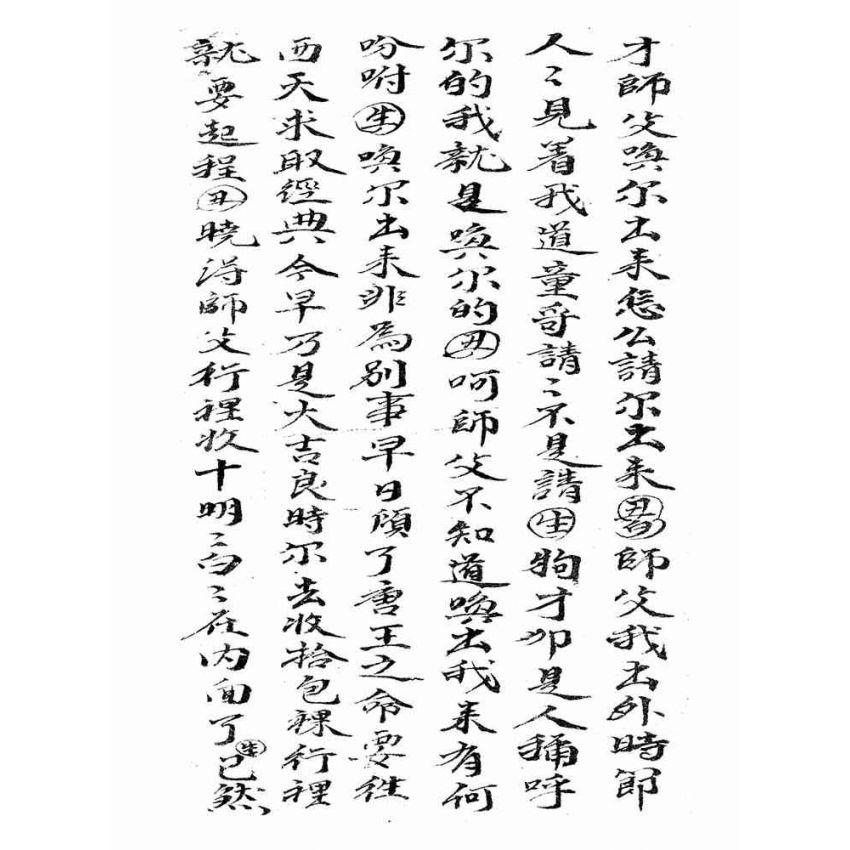 才師父喚尔出来怎么請尔出来丑白師父我出外時節
人〻見着我道童哥請〻不是請生狗才卯是人稱呼
尔的我就是喚尔的丑呵師父不知道喚出我来有何
吩咐生喚尔出来非為别事早日領了唐王之命要往
西天求取經典今早乃是大吉良時尔去收拾包裸行裡
就要起程丑曉淂師父行裡收十明〻白〻在内面了生已然